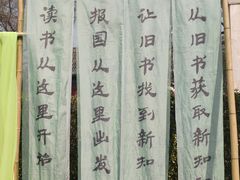 从旧书获取新知
让旧书找到新知
报国从这里出发
读书从这里开始